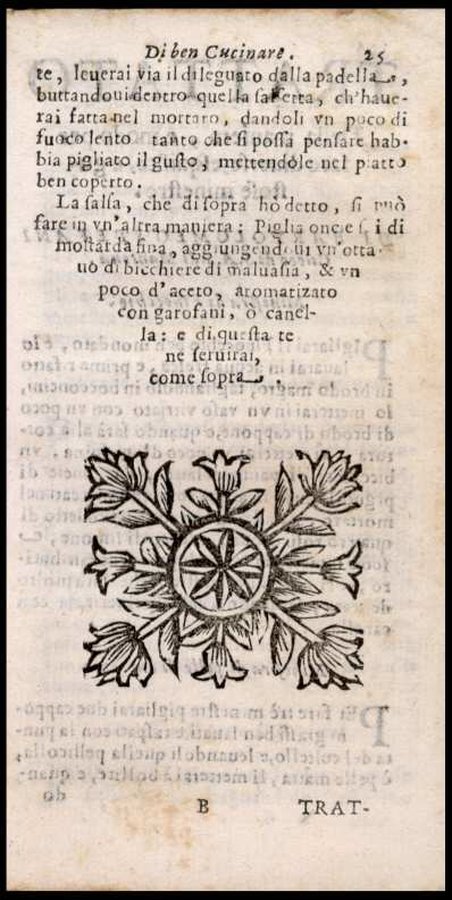 Di ben Cucinare. 25
te, leuerai via il dileguato dalla padella,
buttandoui dentro quella salsetta, ch'haue-
rai fatta nel mortaro, dandoli vn poco di
fuoco lento tanto che si possa pensare hab-
bia pigliato il gusto, mettendole nel piatto
ben coperto.
La salsa, che di sopra hò detto, si può
fare in vn'altra maniera; Piglia oncie di
mostarda fina, aggiungendoui vn'otta-
uo di bicchiere di maluasia, & vn
poco d'aceto, aromatizato
con garofani, ò canel-
la: e di questa te
ne seruirai,
come sopra.
B TRAT-